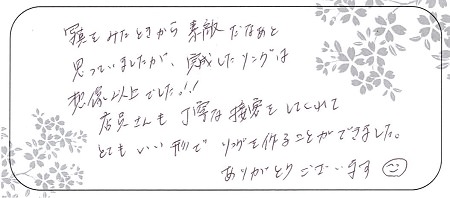 写真をみたときから素敵だなあと
思っていましたが、完成したリングは
想像以上でした!!
店員さんも丁寧な接客をしてくれて
とてもいい形でリングを作ることができました。
ありがとうございます